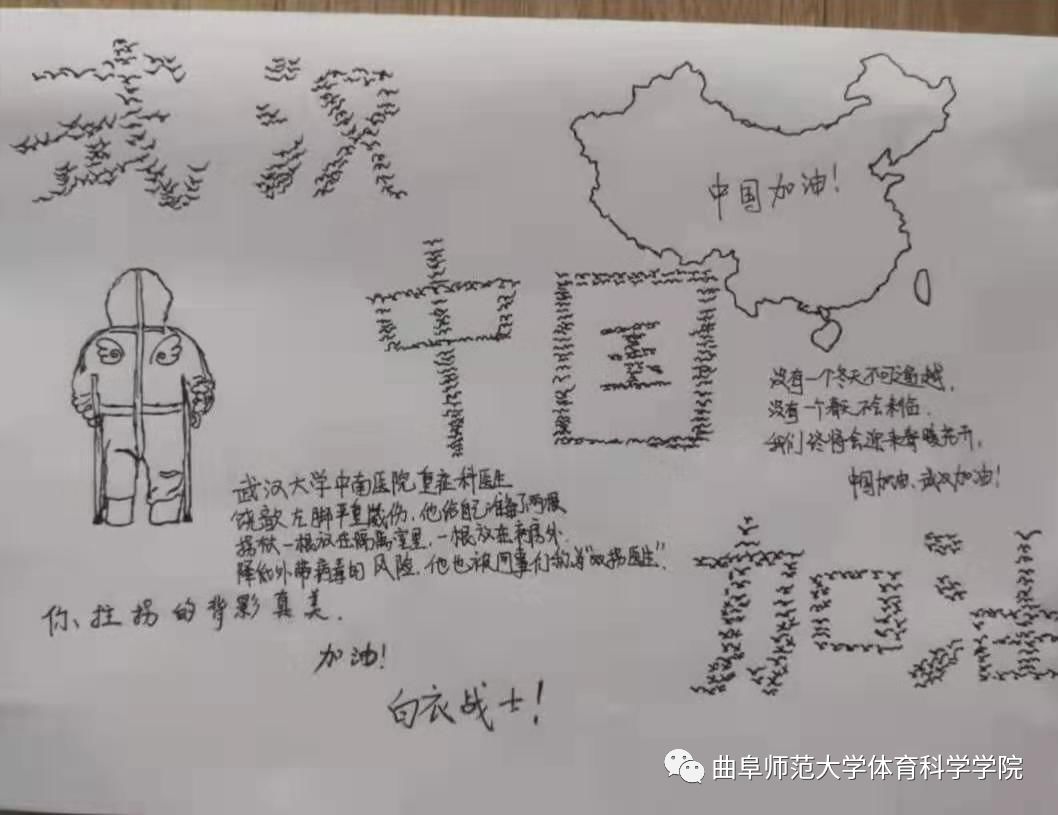 武汉
中国加油！
中国
没有一个冬天不可逾越，
没有一个春天不会来临．
我们终将会迎来春暖花开，
中国加油、武汉加油！
武汉大学中南医院重症科医生
饶歆左脚严重崴伤，他给自己准备了两根
拐杖一根放在隔离室里，一根放在病房外
降低外带病毒的风险．他也被同事们称为“双拐医生”．
你、拄拐的背影真美．
加油！
白衣战士！
加油
曲阜师范大学体育科学学院